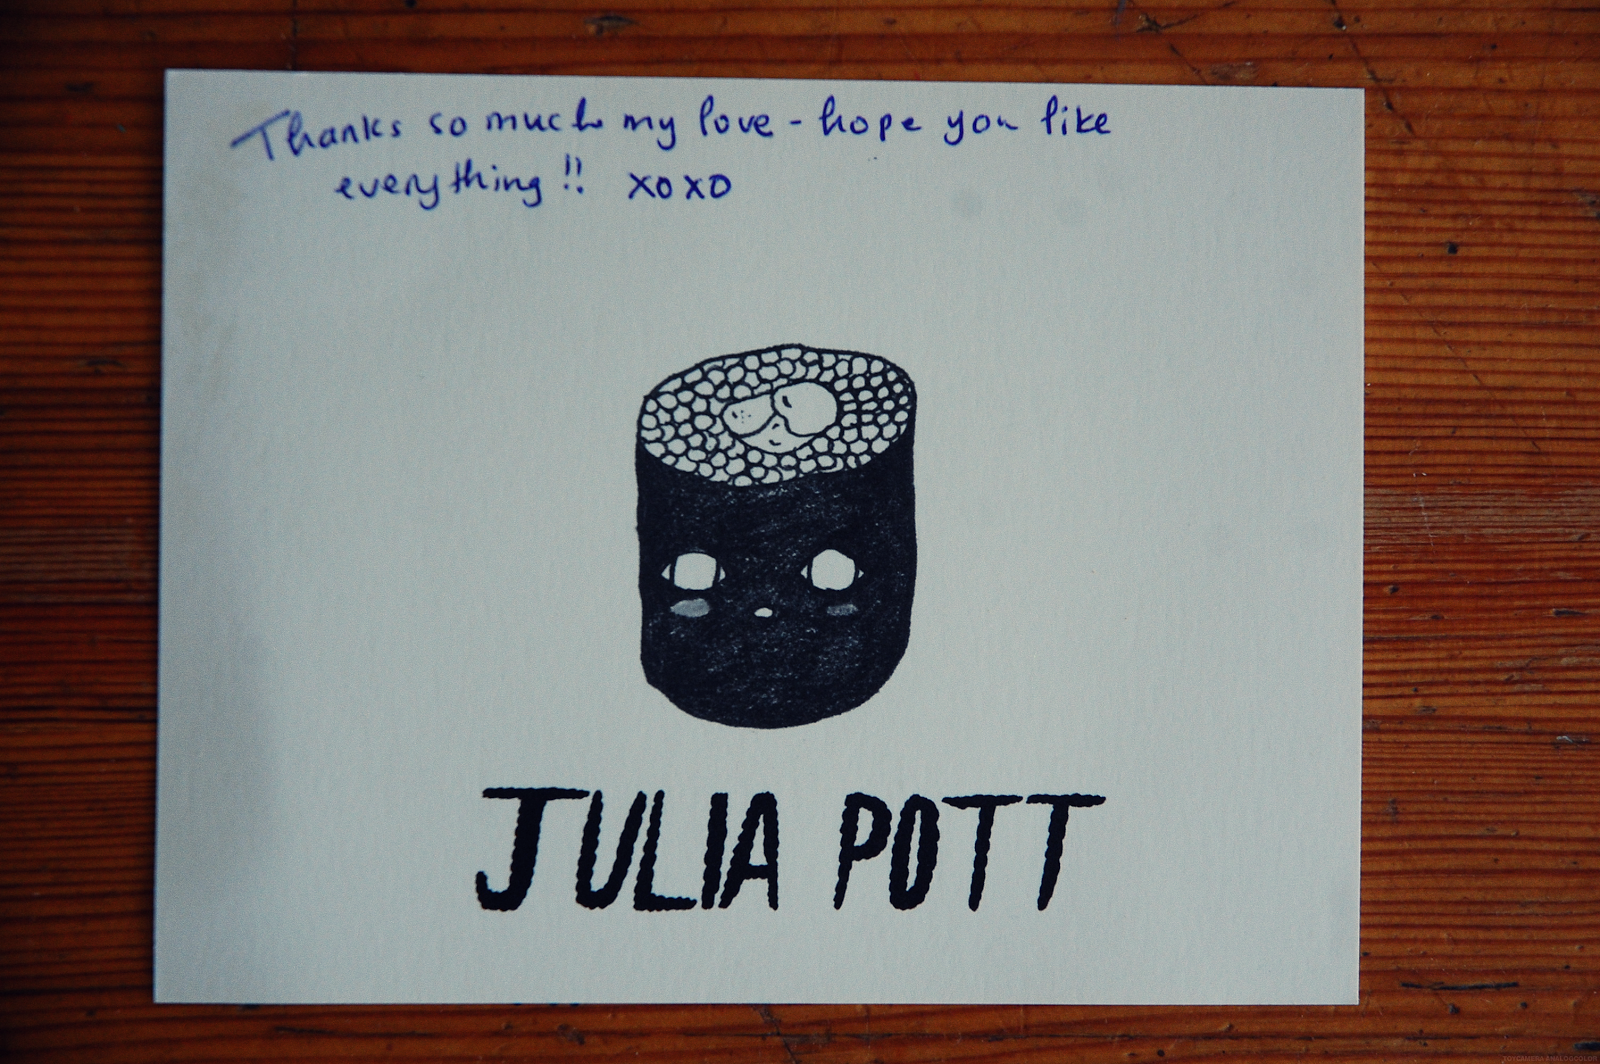 Thanks so much my love - hope you like
everything!! xoxo
JULIA POTT
TOYCAMERA ANALOGCOLOR